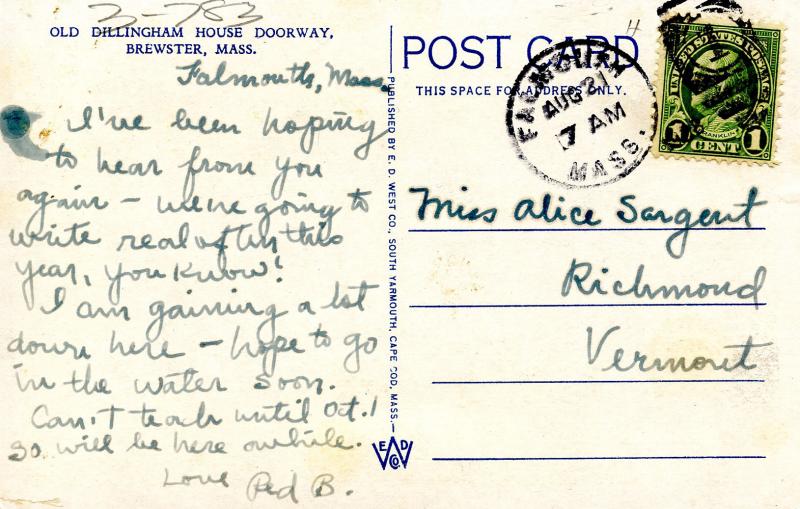 3-783
OLD DILLINGHAM HOUSE DOORWAY,
BREWSTER, MASS.
Falmouth, Mass.
I've been hoping
to hear from you
again - we're going to
write real often this
year, you know!
I am gaining a lot
down here - hope to go
in the water soon.
Can't teach until Oct. 1
so will be here awhile.
Love
B.
PUBLISHED BY E. D. WEST CO., SOUTH YARMOUTH, CAPE COD, MASS.
E D
W
CO.
POST CARD
THIS SPACE FOR ADDRESS ONLY.
FALMOUTH
AUG 21
7 AM
MASS.
UNITED STATES POSTAGE
FRANKLIN
1 CENT 1
Miss Alice Sargent
Richmond
Vermont